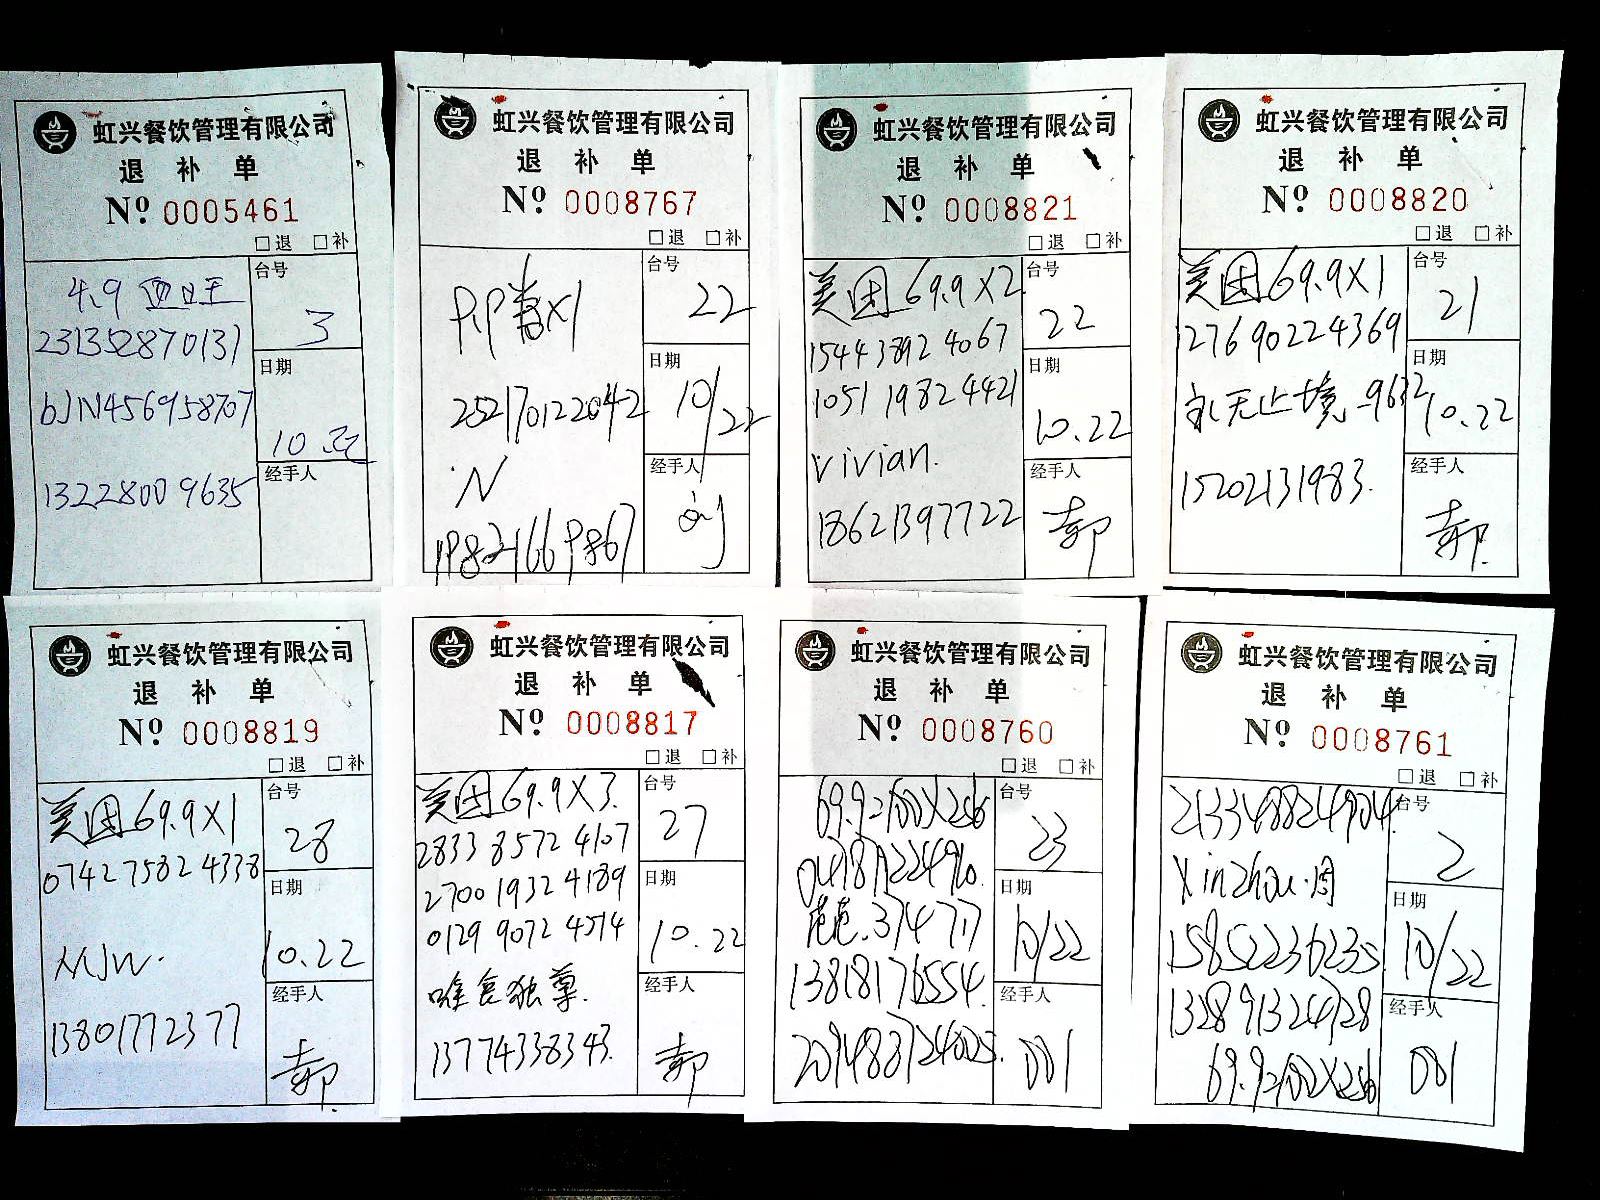 虹兴餐饮管理有限公司
退 补 单
Nº 0005461
□退 □补
4.9 血旺
231352870131
bJN456958707
13228009635
台号
3
日期
10.22
经手人
虹兴餐饮管理有限公司
退 补 单
Nº 0008767
□退 □补
252170122042
N
19821669867
台号
22
日期
10/22
经手人
刘
虹兴餐饮管理有限公司
退 补 单
Nº 0008821
□退 □补
美团69.9X2
154438924067
105119824421
vivian.
18621397722
台号
22
日期
10.22
经手人
郝
虹兴餐饮管理有限公司
退 补 单
Nº 0008820
□退 □补
美团69.9X1
127690224369
永无止境_9632
15202131983.
台号
21
日期
10.22
经手人
郝.
虹兴餐饮管理有限公司
退 补 单
Nº 0008819
□退 □补
美团69.9X1
074275824338
13801772377
台号
28
日期
10.22
经手人
郝.
虹兴餐饮管理有限公司
退 补 单
Nº 0008817
□退 □补
美团69.9X3.
2833 8572 4107
2700 1932 4189
0129 9072 4574
唯食独尊.
13774338343.
台号
27
日期
10.22
经手人
郝
虹兴餐饮管理有限公司
退 补 单
Nº 0008760
□退 □补
13818176554.
台号
23
日期
10/22
经手人
001
虹兴餐饮管理有限公司
退 补 单
Nº 0008761
□退 □补
213348824904
Xinzhou.周
15852236235
132891324728
台号
2
日期
10/22
经手人
001